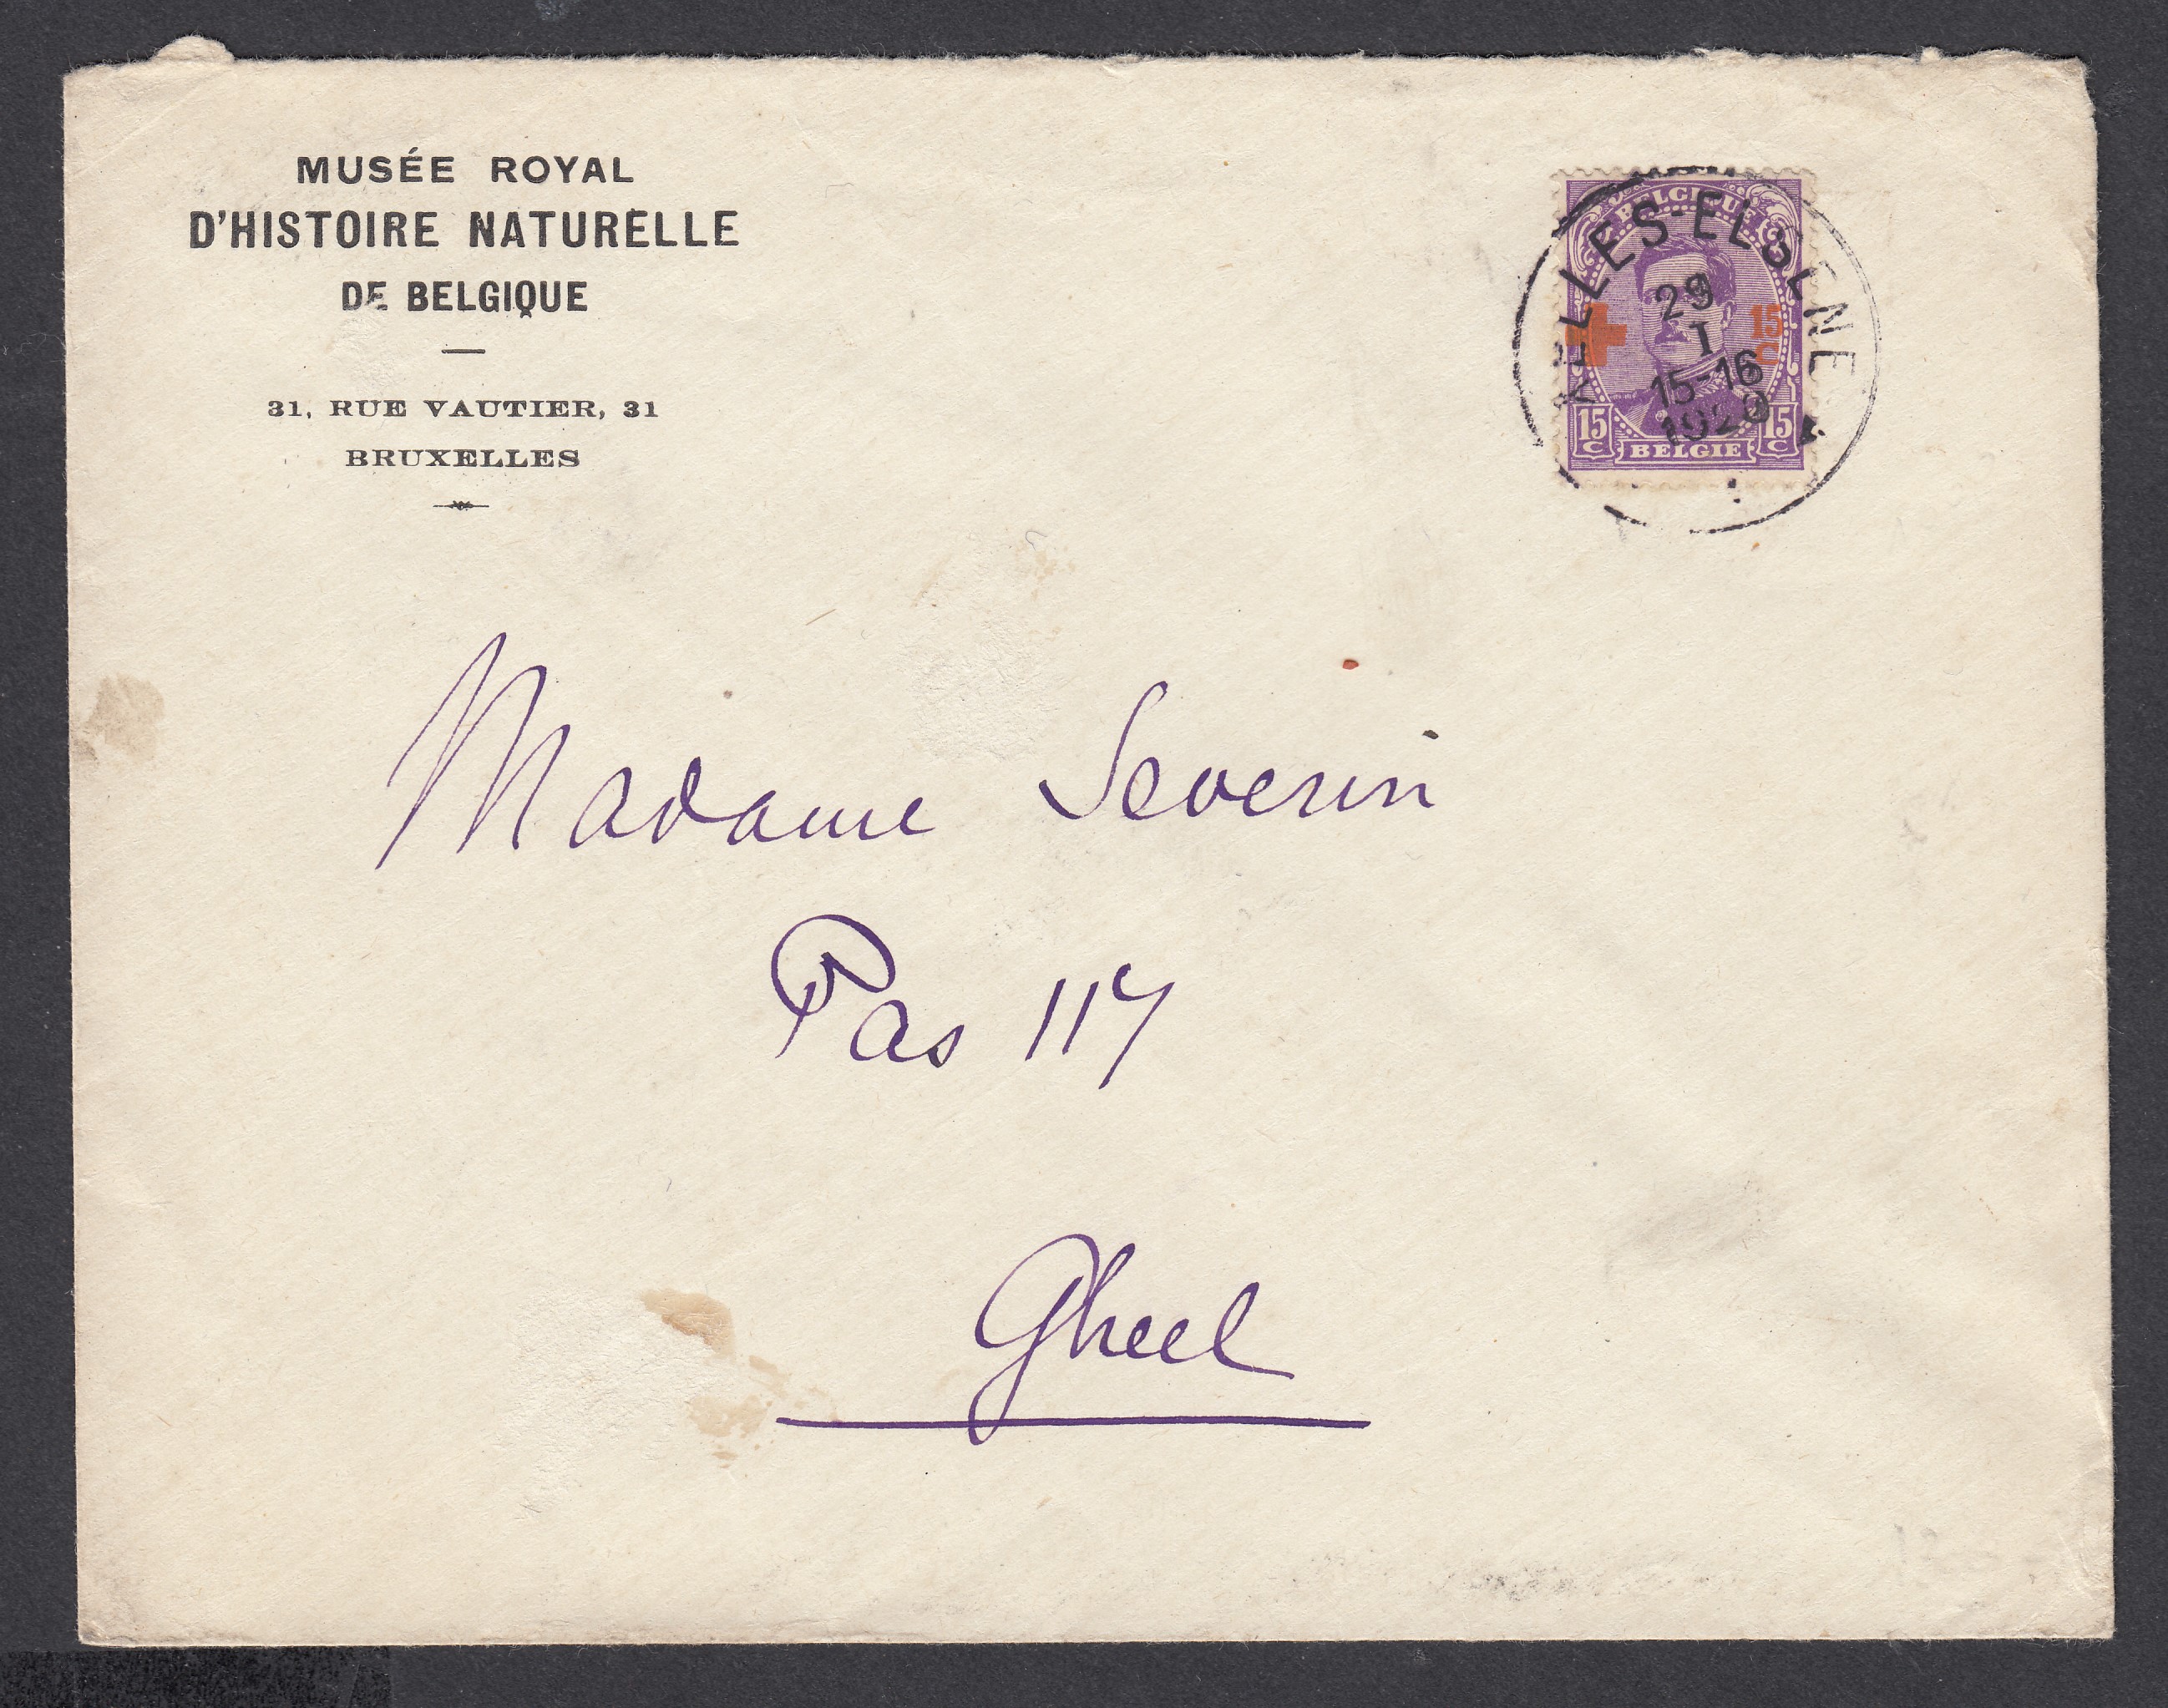 MUSÉE ROYAL
D'HISTOIRE NATURELLE
DE BELGIQUE
31, RUE VAUTIER, 31
BRUXELLES
BELGIQUE
15
C
15
C
15
C
BELGIË
IXELLES-ELSENE
29
I
15-16
1920
Madame Severin
Pas 117
Gheel